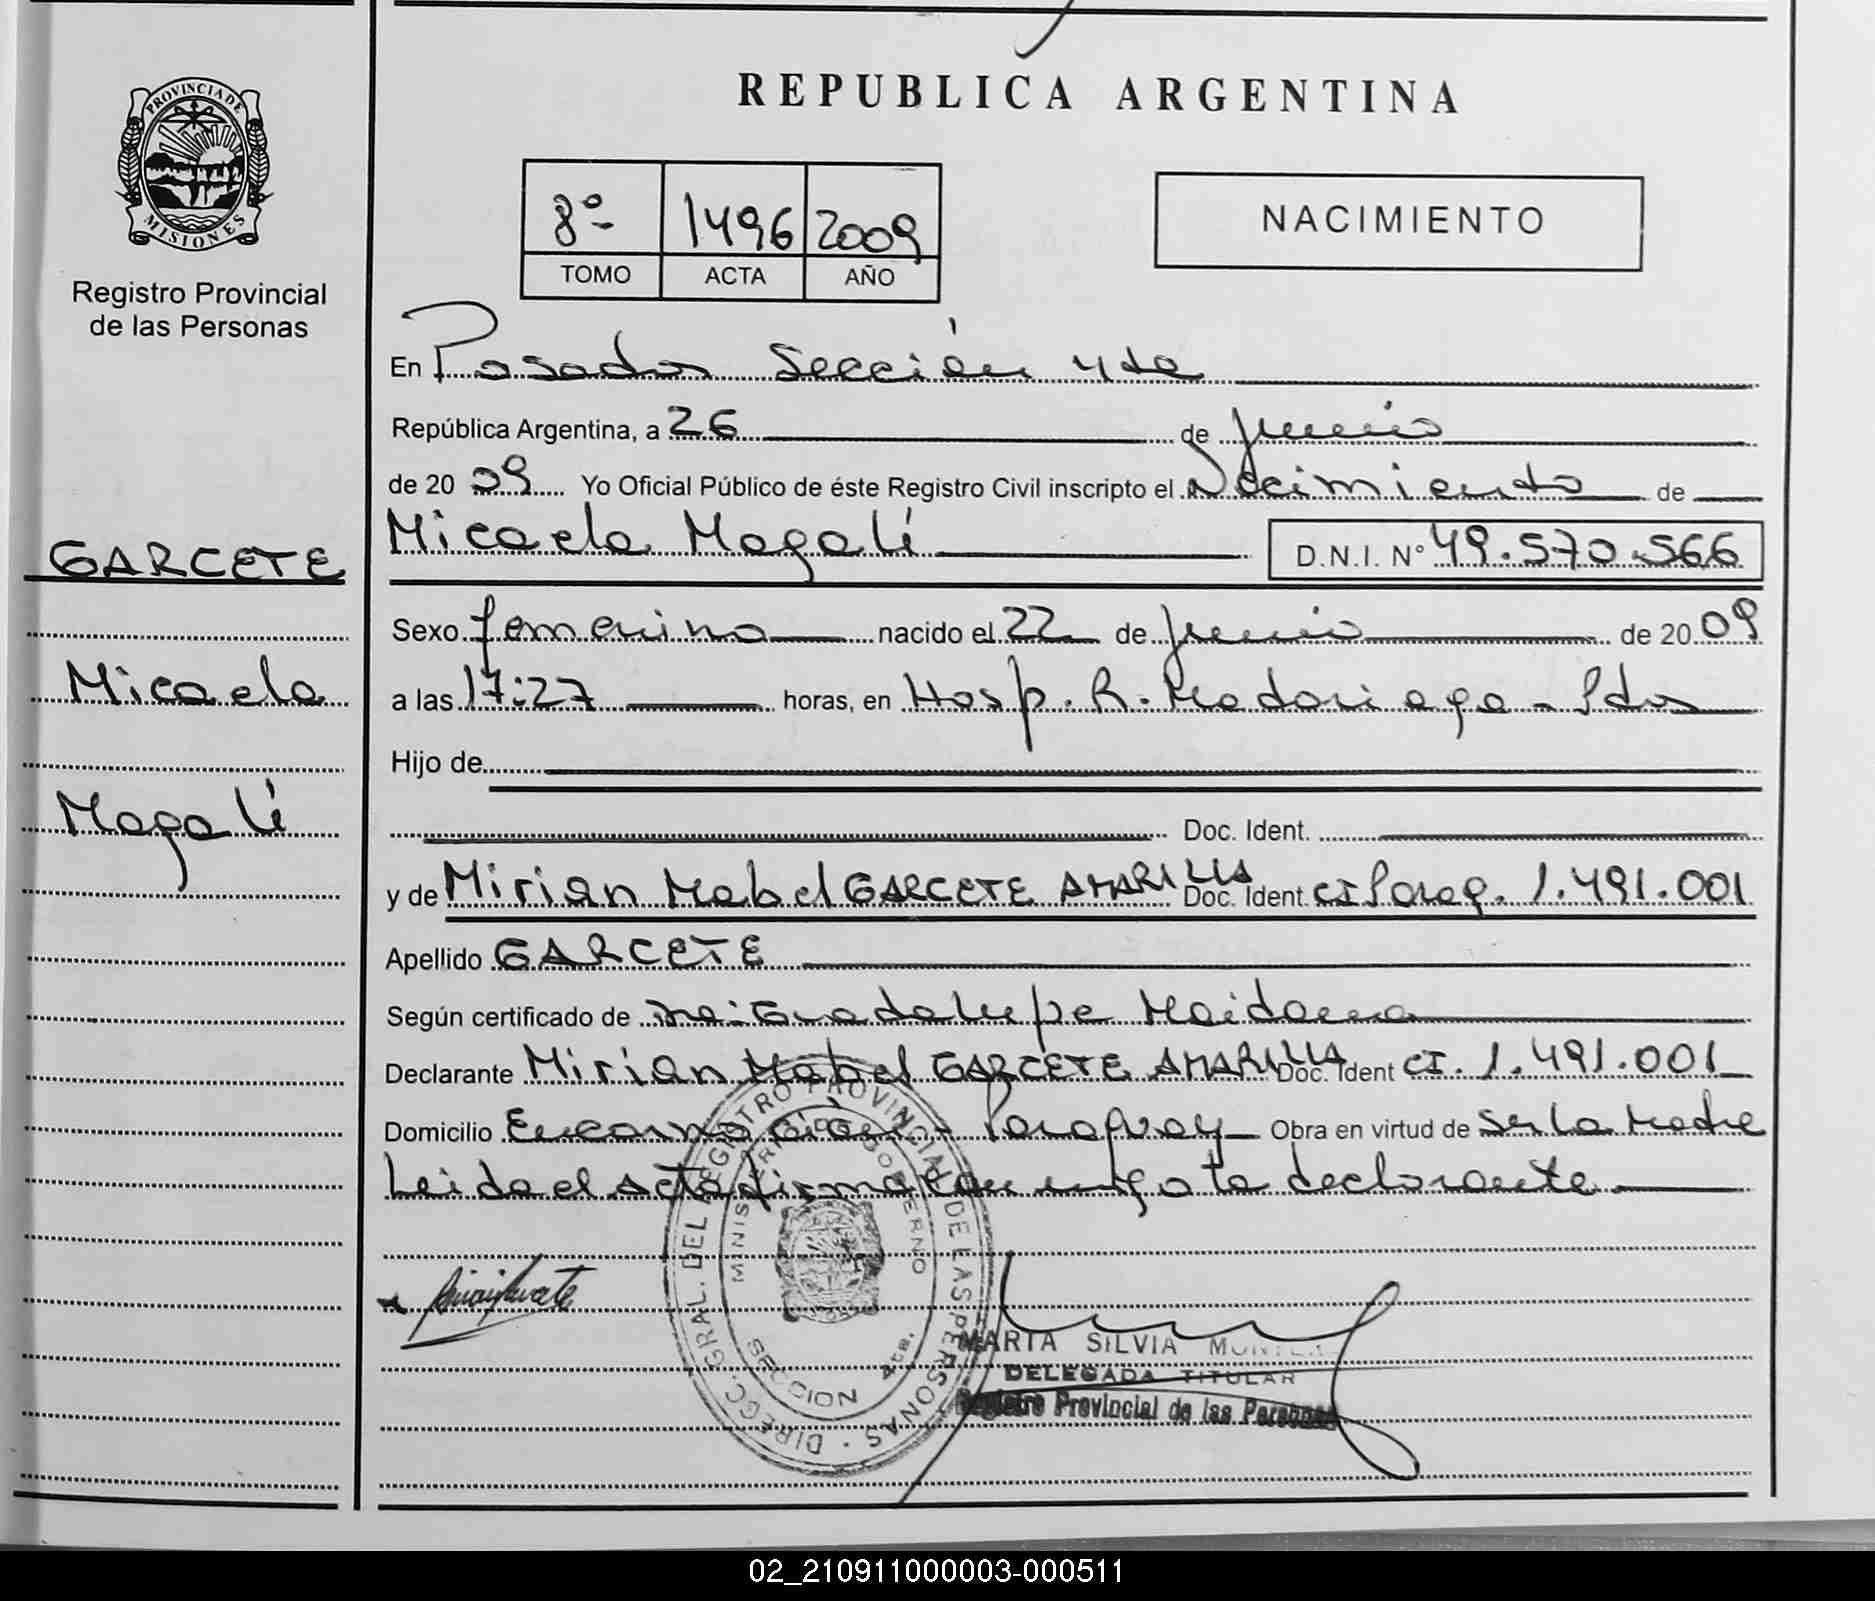 REPUBLICA ARGENTINA
PROVINCIA DE MISIONES
Registro Provincial
de las Personas
8º 1496 2009
TOMO ACTA AÑO
NACIMIENTO
En Posadas Sección 4ta
República Argentina, a 26 de Junio
de 20 09 Yo Oficial Público de éste Registro Civil inscripto el Nacimiento de
GARCETE
Micaela Magalí D.N.I. Nº 49.570.566
Sexo femenino nacido el 22 de Junio de 20 09
Micaela
a las 17:27 horas, en Hosp. R. Madariaga - Pdas
Hijo de
Magalí
Doc. Ident.
y de Mirian Mabel GARCETE AMARILLA Doc. Ident. CI Parag. 1.491.001
Apellido GARCETE
Según certificado de Guadalupe Maidana
Declarante Mirian Mabel GARCETE AMARILLA Doc. Ident CI. 1.491.001
Domicilio Encarnación - Paraguay Obra en virtud de ser la Madre
Leida el Acta firma conmigo la declarante
DIRECC. GRAL. DEL REGISTRO PROVINCIAL DE LAS PERSONAS
MINISTERIO DE GOBIERNO
SECCION 4ta.
MARIA SILVIA
DELEGADA TITULAR
Registro Provincial de las Personas
02_210911000003-000511